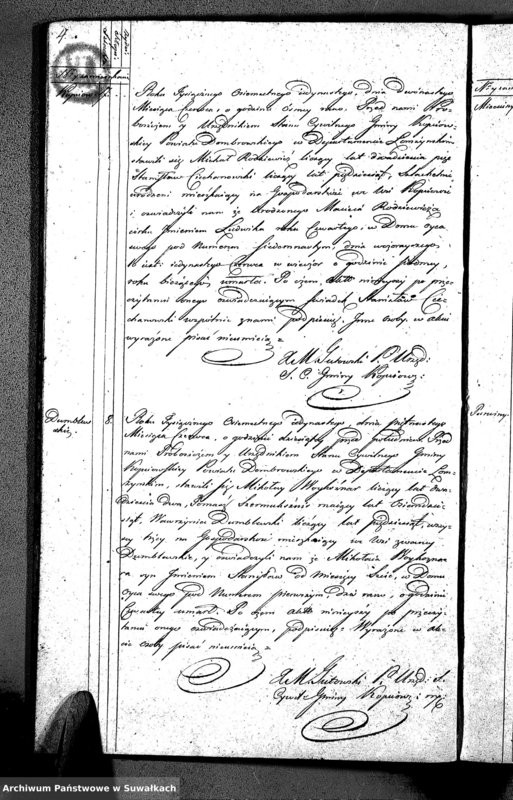 4.
Kopciowo
Roku Tysiącznego Osiemsetnego iedynastego, dnia Dwunastego
Miesiąca Czerwca, o godzinie ósmey rano. Przed nami Pro-
boszczem y Urzędnikiem Stanu Cywilnego Gminy Kopciow-
skiey Powiatu Dombrowskiego w Departamencie Łomżyńskim
stawili się Michał Rodziewicz liczący lat dwadzieścia pięć
Stanisław Ciechanowski liczący lat pięćdziesiąt, Szlachetnie
urodzeni mieszkaiący na Gospodarstwie we Wsi Kopciowie
i oświadczyli nam że Urodzonego Macieia Rodziewicza
córka Imieniem Ludwika roku Czwartego, w Domu oyca
swego pod Numerem Siedemnastym, dnia wczorayszego
to iest iedynastego Czerwca w wieczor o godzinie
roku bieżącego, umarła. Po czem Akt ninieyszy po prze-
czytaniu onego oświadczaiącym świadek Stanisław Cie-
chanowski wspólnie z nami podpisał. Inne osoby w akcie
wyrażone pisać nieumieią
X M Gutowski P. Urzęd:
S. C. Gminy Kopciow:
Dumblew
skie
8.
Roku Tysiącznego Osiemsetnego iedynastego, dnia piętnastego
Miesiąca Czerwca, o godzinie dziewiątey przed południem Przed
nami Proboszczem y Urzędnikiem Stanu Cywilnego Gminy
Kopciowskiey Powiatu Dombrowskiego w Departamencie Łom-
żyńskim, stawili się Mikołay liczący lat dwa-
dzieścia dwa, Tomasz maiący lat
Wawrzyniec Dumblewski liczący lat pięćdziesiąt, wszy-
scy trzey na Gospodarstwie mieszkaiący we Wsi zwaney
Dumblewskie, y oświadczyli nam że Mikołaia
syn Imieniem Stanisław od Miesięcy Sześć, w Domu
oyca swego pod Numerem pierwszym dziś rano, o godzinie
Czwartey umarł. Po czem Akt ninieyszy po przeczy-
taniu onego oświadczaiącym, podpisaliśmy Wyrażone w ak-
cie osoby pisać nieumieią
X M Gutowski P. Urzęd. S.
Cywil: Gminy Kopciow: mp.
Archiwum Państwowe w Suwałkach